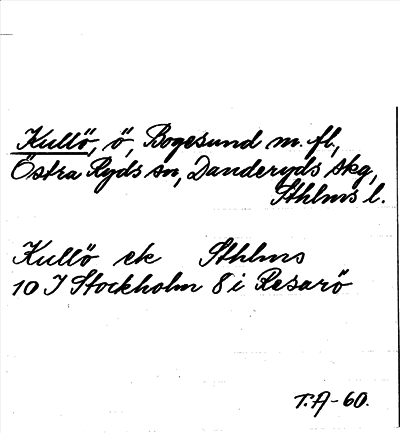 Kullö, ö, Bogesund m. fl.,
Östra Ryds sn, Danderyds skg,
Sthlms l.
Kullö ek Sthlms
10 I Stockholm 8 i Resarö
T.A-60.